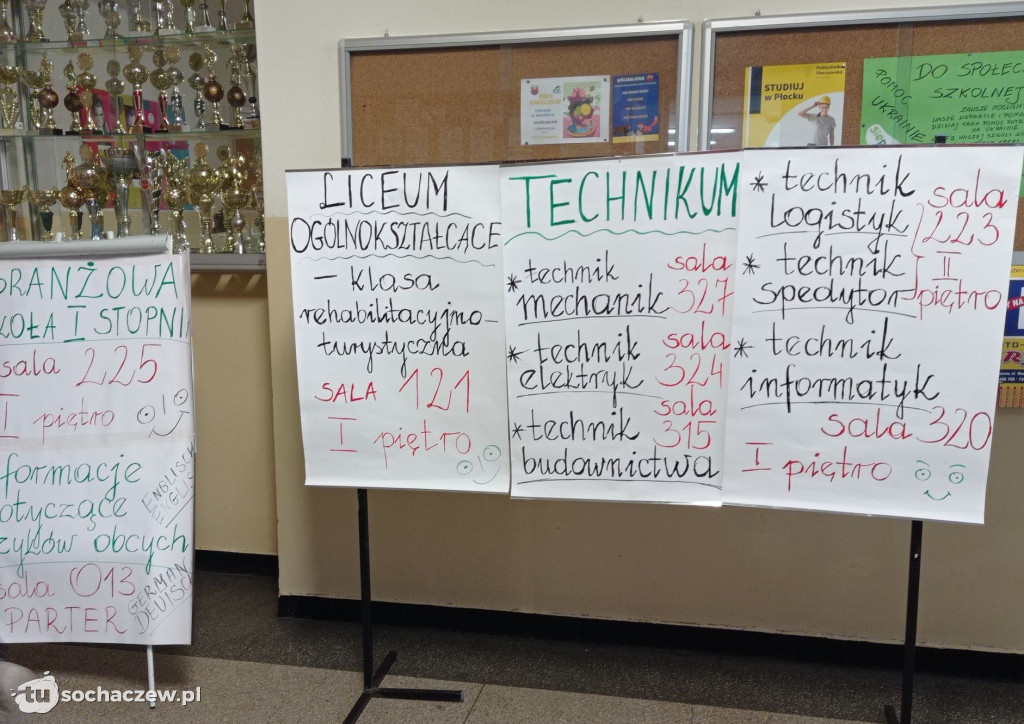 STUDIUJ
w Płocku
DO SPOŁEC
SZKOLNEJ
POMOC
UKRAINIE
LICEUM
OGÓLNOKSZTAŁCĄCE
– klasa
rehabilitacyjno–
turystyczna
SALA 121
I piętro
TECHNIKUM
* technik
mechanik
sala
327
* technik
elektryk
sala
324
* technik
budownictwa
sala
315
* technik
logistyk
* technik
spedytor
sala
223
II
piętro
* technik
informatyk
sala 320
I piętro
RANŻOWA
KOŁA I STOPNI
sala 225
I piętro
formacje
otyczące
zyków obcych
ENGLISCH
ENGLISH
sala 013
PARTER
GERMAN
DEUTSCH
tu sochaczew.pl